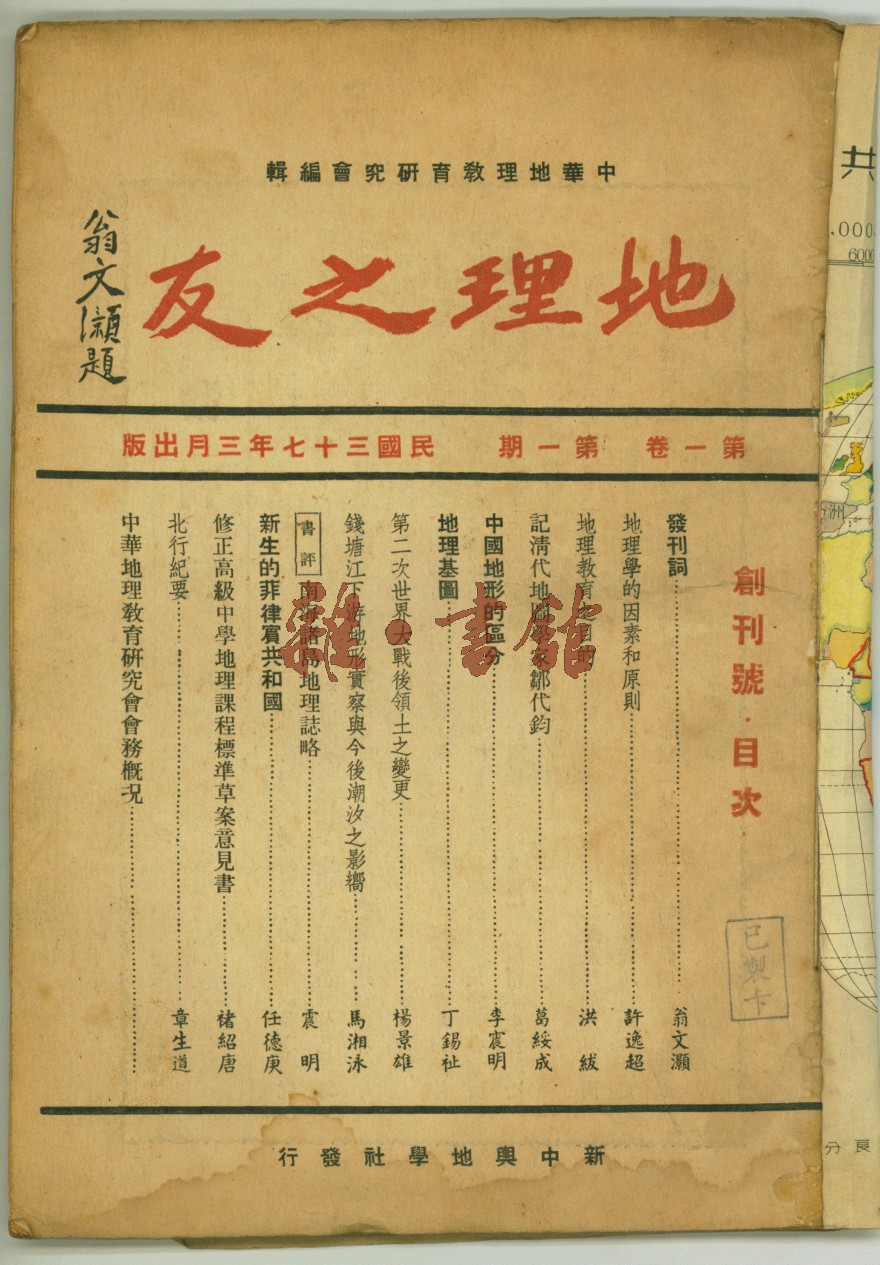 中華地理教育研究會編輯
地理之友
翁文灝題
第一卷 第一期 民國三十七年三月出版
創刊號·目次
發刊詞 翁文灝
地理學的因素和原則 許逸超
地理教育之目的 洪紱
記清代地圖學家鄒代鈞 葛綏成
中國地形的區分 李宸明
地理基圖 丁錫祉
第二次世界大戰後領土之變更 楊景雄
錢塘江下游地形實察與今後潮汐之影響 馬湘泳
書評 南海諸島地理誌略 震明
新生的菲律賓共和國 任德庚
修正高級中學地理課程標準草案意見書 褚紹唐
北行紀要 章生道
中華地理教育研究會會務概况
已製卡
新中輿地學社發行
雜·書館
共
,000,
6000
洲
分 良